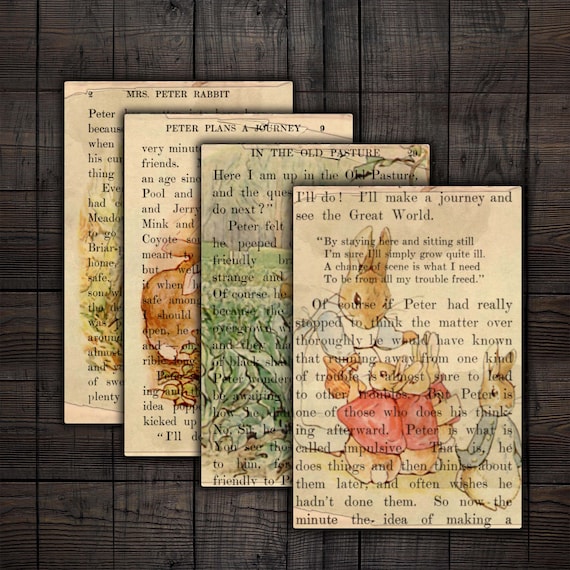 2 MRS. PETER RABBIT
Peter
because
when
his cur
thing
Eve
had co
Meadow
to go
Briar-
home
safe,
son wh
the
was
around
almost
and st
of swe
plenty
PETER PLANS A JOURNEY 9
very minute
friends.
an age since
Pool and
and Jerry
Mink and
Coyote so
meant
but
well
when
safe among
should
open, he
and
rible
Peter
ing and
idea pop
kicked up
"I'll d
IN THE OLD PASTURE 29
Here I am up in the Old Pasture,
and the ques
do next?"
Peter felt
he peeped
friendly
strange and
Of course he
because
overgrown w
and they ha
in black sha
Peter wondere
be awaiting
how
No, Sir, he
You see
to him, for
friendly to P
I'll do! I'll make a journey and
see the Great World.
"By staying here and sitting still
I'm sure I'll simply grow quite ill.
A change of scene is what I need
To be from all my trouble freed."
Of course if Peter had really
stopped to think the matter over
thoroughly he would have known
that running away from one kind
of trouble is almost sure to lead
to other troubles. But Peter is
one of those who does his think-
ing afterward. Peter is what is
called impulsive. That is, he
does things and then thinks about
them later, and often wishes he
hadn't done them. So now the
minute the idea of making a